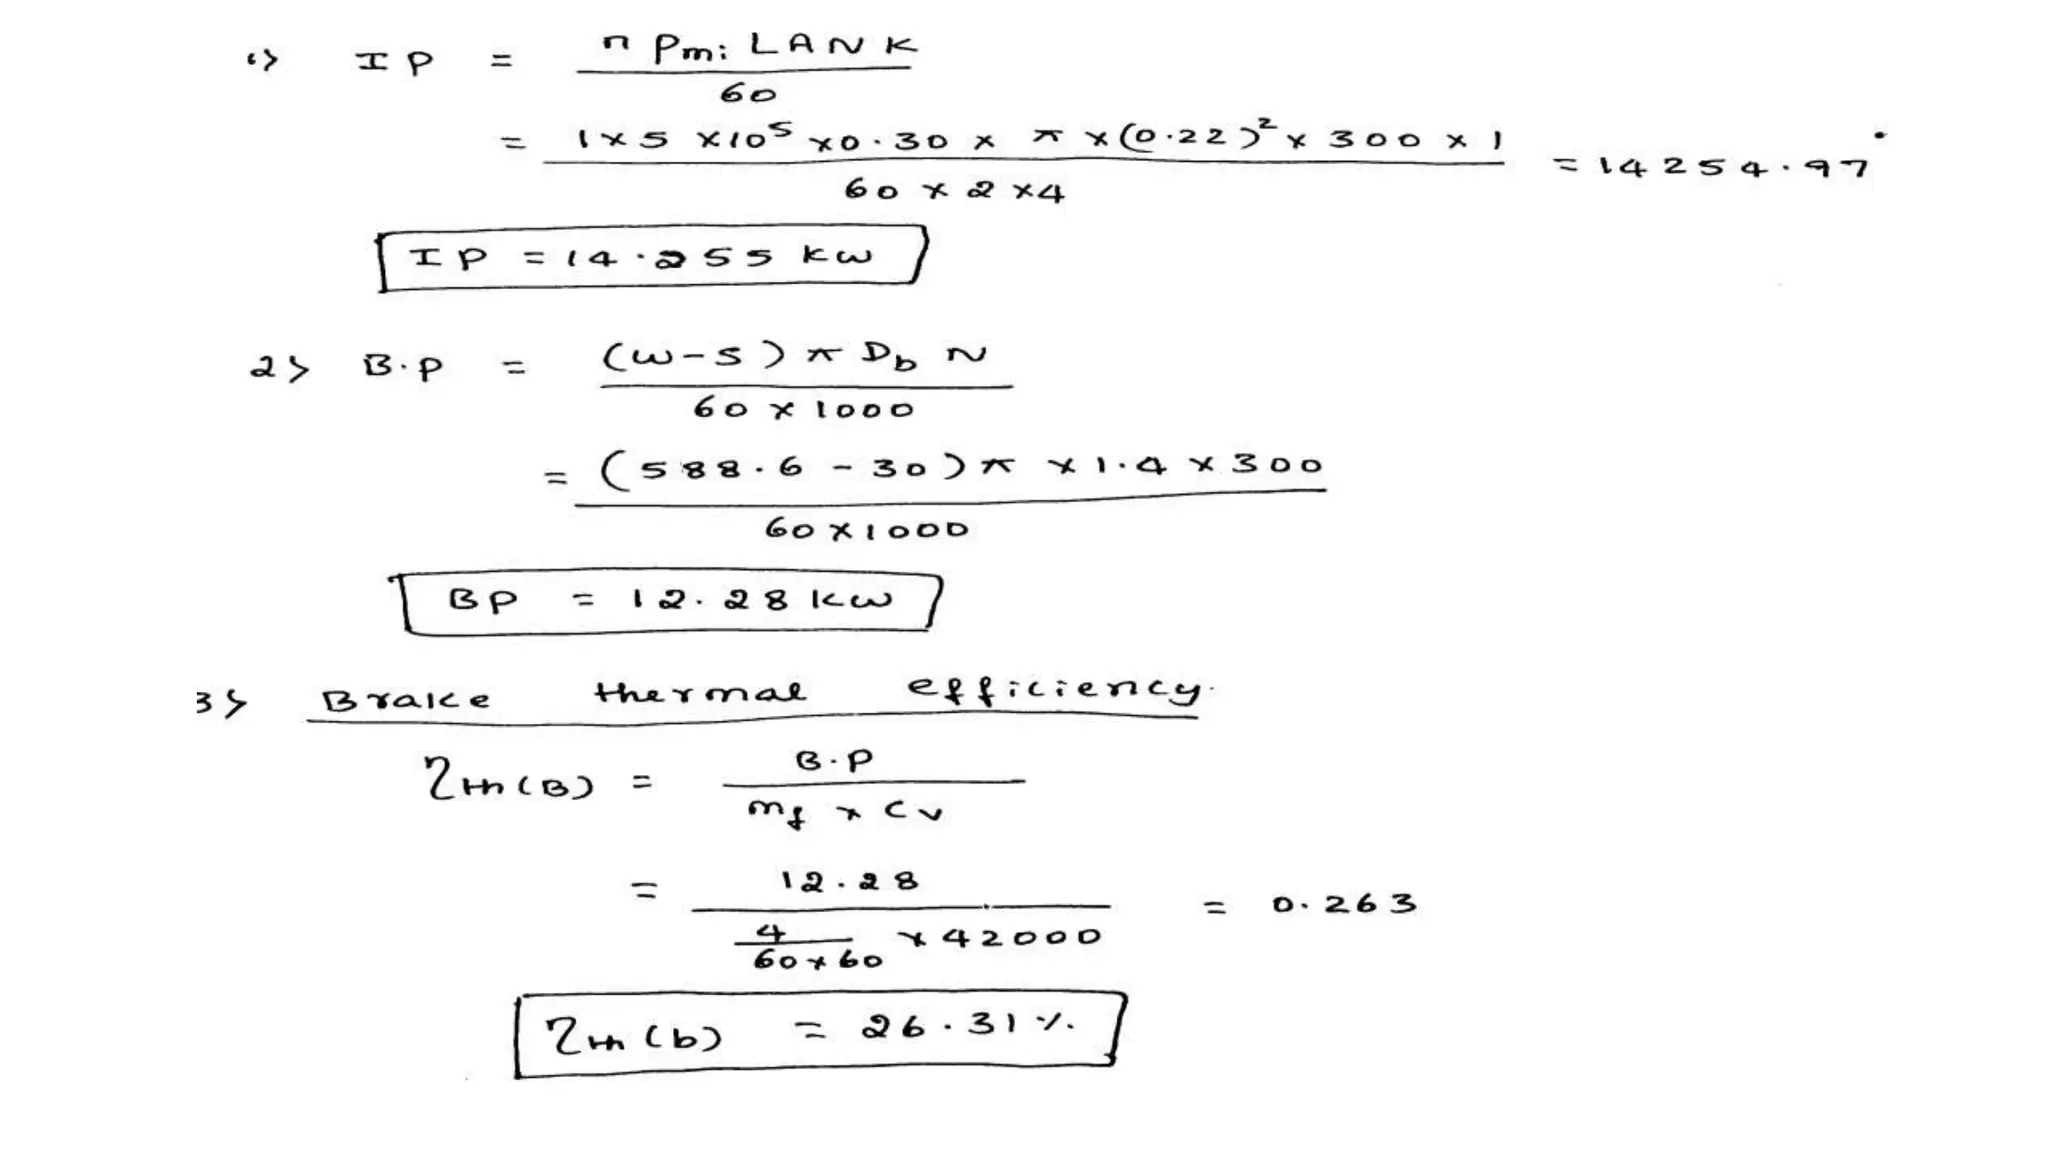 1> IP = n Pmi LANK / 60
= 1×5 ×10⁵ ×0.30 × π ×(0.22)² × 300 × 1 / 60 × 2 ×4 = 14254.97
IP = 14.255 kw
2> B.P = (w-s) π Db N / 60 × 1000
= (588.6 - 30) π × 1.4 × 300 / 60×1000
BP = 12.28 kw
3> Brake thermal efficiency.
ηth(B) = B.P / mf × Cv
= 12.28 / 4/60×60 × 42000 = 0.263
ηth(b) = 26.31 %.